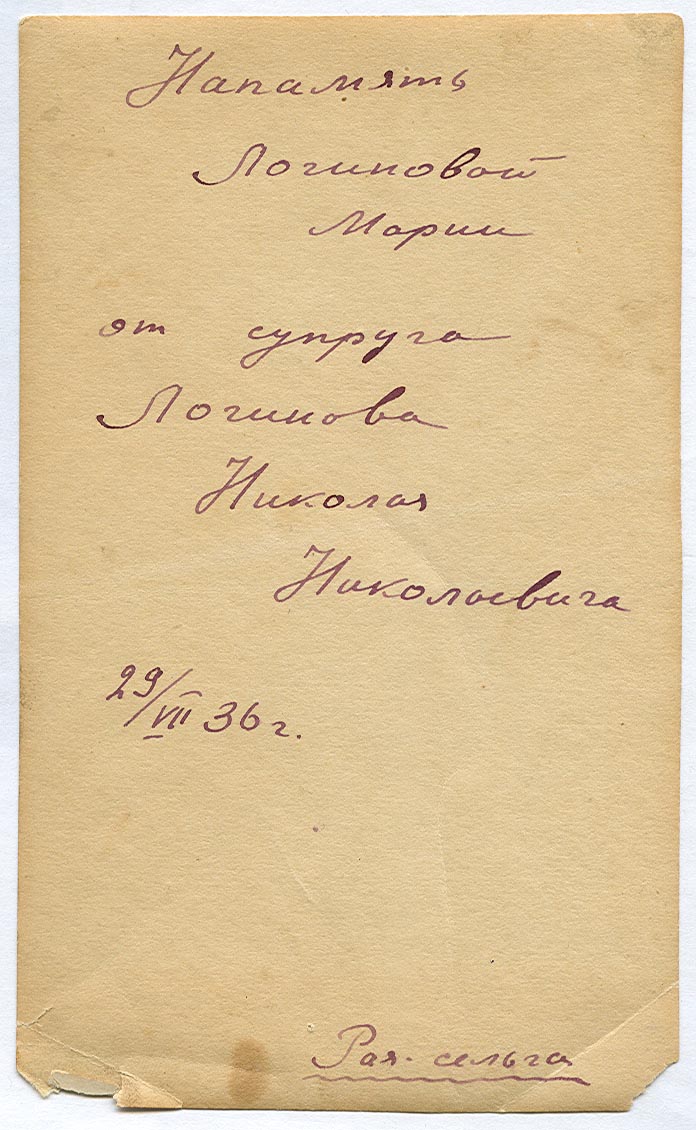 Напамять
Логиновой
Марии
от супруга
Логинова
Николая
Николаевича
29/VII 36 г.
Рая-сельга